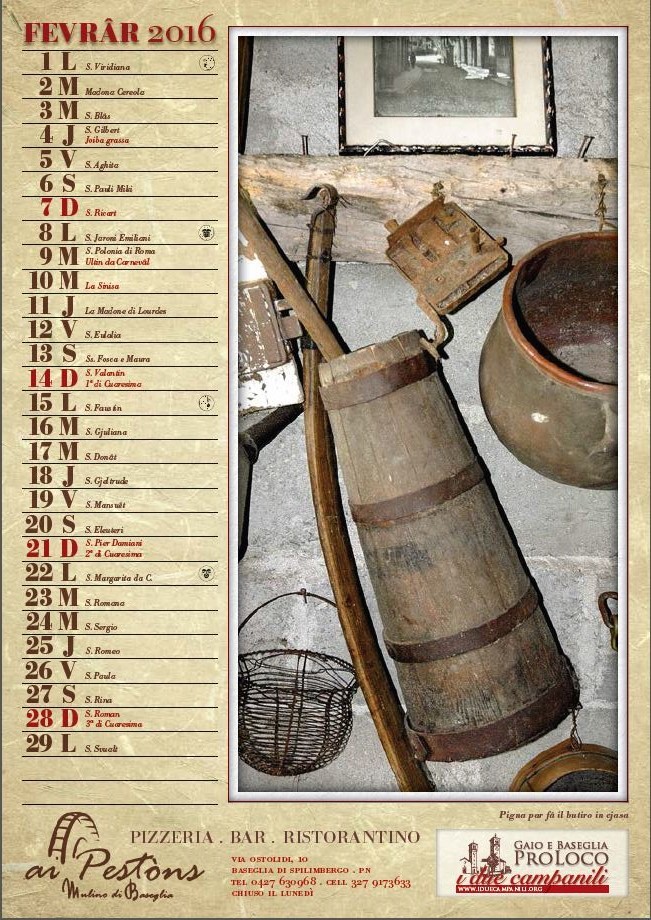 FEVRÂR 2016
1 L S. Viridiana
2 M Madona Cereola
3 M S. Blâs
4 J S. Gilbert
Joiba grassa
5 V S. Aghita
6 S S. Pauli Miki
7 D S. Ricart
8 L S. Jaroni Emiliani
9 M S. Polonia di Roma
Ultin da Carnevâl
10 M La Sinisa
11 J La Madone di Lourdes
12 V S. Eulalia
13 S Ss. Fosca e Maura
14 D S. Valantin
1ª di Cuaresima
15 L S. Faustin
16 M S. Gjuliana
17 M S. Donât
18 J S. Gjeltrude
19 V S. Mansuêt
20 S S. Eleuteri
21 D S. Pier Damiani
2ª di Cuaresima
22 L S. Margarita da C.
23 M S. Romana
24 M S. Sergio
25 J S. Romeo
26 V S. Paula
27 S S. Rina
28 D S. Roman
3ª di Cuaresima
29 L S. Svualt
Pigna par fâ il butiro in cjasa
ai Pestòns
Mulino di Baseglia
PIZZERIA . BAR . RISTORANTINO
VIA OSTOLIDI, 10
BASEGLIA DI SPILIMBERGO . PN
TEL 0427 630968 . CELL 327 9173633
CHIUSO IL LUNEDÌ
GAIO E BASEGLIA
PROLOCO
i due campanili
WWW.IDUECAMPANILI.ORG